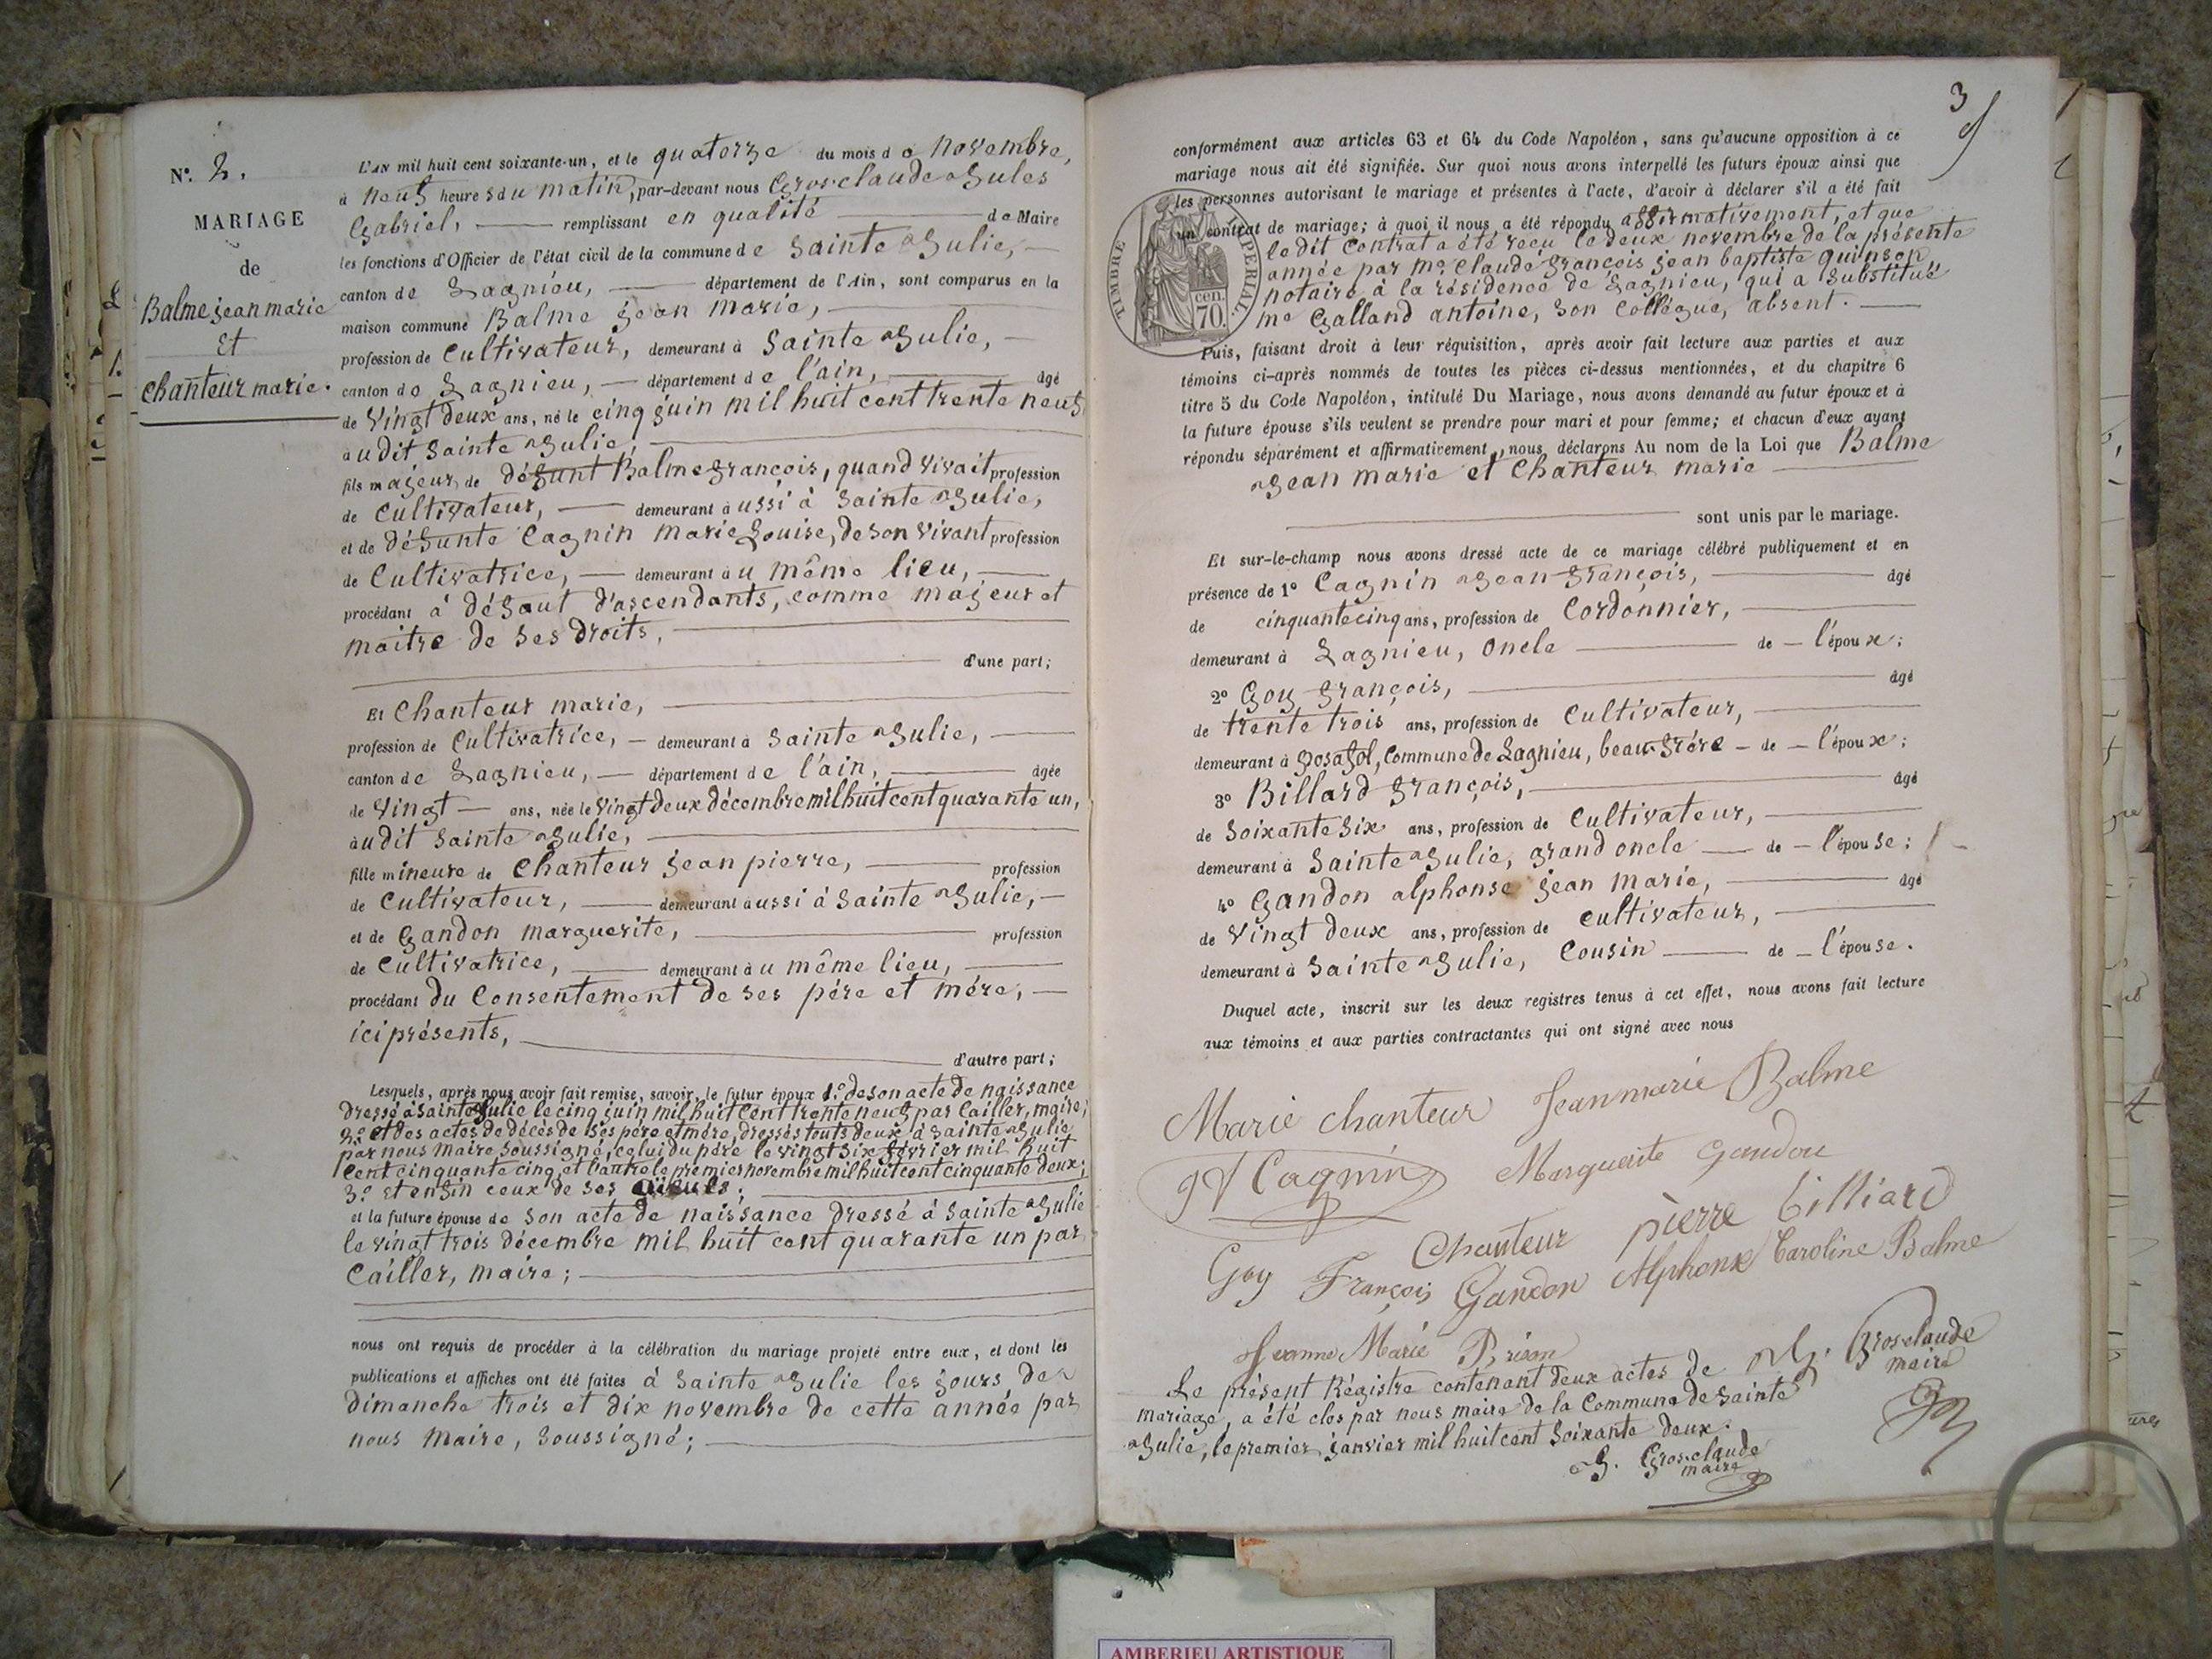 N.º 2.
MARIAGE
de
Balme jean marie
Et
Chanteur marie.
L'AN mil huit cent soixante-un, et le quatorze du mois de Novembre,
à neuf heures du matin, par-devant nous Grosclaude Jules
Gabriel, remplissant en qualité de Maire
les fonctions d'Officier de l'état civil de la commune de Sainte Julie,
canton de Lagnieu, département de l'Ain, sont comparus en la
maison commune Balme jean marie,
profession de Cultivateur, demeurant à Sainte Julie,
canton de Lagnieu, département de l'ain, âgé
de Vingt deux ans, né le cinq juin mil huit cent trente neuf
audit Sainte Julie,
fils majeur, de défunt Balme françois, quand vivait profession
de Cultivateur, demeurant aussi à Sainte Julie,
et de défunte Cagnin marie Louise, de son vivant profession
de Cultivatrice, demeurant au même lieu,
procédant à défaut d'ascendants, comme majeur et
maitre de ses droits,
d'une part;
Et Chanteur marie,
profession de Cultivatrice, demeurant à Sainte Julie,
canton de Lagnieu, département de l'ain, âgée
de Vingt ans, née le Vingt deux décembre mil huit cent quarante un,
audit Sainte Julie,
fille mineure de Chanteur jean pierre, profession
de Cultivateur, demeurant aussi à Sainte Julie,
et de Gandon marguerite, profession
de Cultivatrice, demeurant au même lieu,
procédant du Consentement de ses père et mère,
ici présents,
d'autre part;
Lesquels, après nous avoir fait remise, savoir, le futur époux 1.º de son acte de naissance
dressé à Sainte Julie le cinq juin mil huit cent trente neuf par Cailler, maire;
2.º et des actes de décès de ses père et mère, dressés touts deux à Sainte Julie
par nous maire Soussigné, celui du père le vingt six février mil huit
cent cinquante cinq, et l'autre le premier novembre mil huit cent cinquante deux;
3.º Et enfin ceux de ses aïeuls;
et la future épouse de son acte de naissance dressé à Sainte Julie
le vingt trois décembre mil huit cent quarante un par
Cailler, maire;
nous ont requis de procéder à la célébration du mariage projeté entre eux, et dont les
publications et affiches ont été faites à Sainte Julie les jours de
dimanche trois et dix novembre de cette année par
nous maire, soussigné;
3
conformément aux articles 63 et 64 du Code Napoléon, sans qu'aucune opposition à ce
mariage nous ait été signifiée. Sur quoi nous avons interpellé les futurs époux ainsi que
les personnes autorisant le mariage et présentes à l'acte, d'avoir à déclarer s'il a été fait
un contrat de mariage; à quoi il nous a été répondu affirmativement, et que
le dit Contrat a été reçu le deux novembre de la présente
année par me. Claude françois jean baptiste quinson,
notaire à la résidence de Lagnieu, qui a Substitué
me Galland antoine, son Collégue, absent.
TIMBRE IMPERIAL.
cen.
70.
Puis, faisant droit à leur réquisition, après avoir fait lecture aux parties et aux
témoins ci-après nommés de toutes les pièces ci-dessus mentionnées, et du chapitre 6
titre 5 du Code Napoléon, intitulé Du Mariage, nous avons demandé au futur époux et à
la future épouse s'ils veulent se prendre pour mari et pour femme; et chacun d'eux ayant
répondu séparément et affirmativement, nous déclarons Au nom de la Loi que Balme
Jean marie et Chanteur marie
sont unis par le mariage.
Et sur-le-champ nous avons dressé acte de ce mariage célébré publiquement et en
présence de 1º Cagnin Jean françois, âgé
de cinquante cinq ans, profession de Cordonnier,
demeurant à Lagnieu, oncle de l'époux;
2º Goy françois, âgé
de trente trois ans, profession de Cultivateur,
demeurant à posafol, Commune de Lagnieu, beau-frère de l'époux;
3º Billard françois, âgé
de soixante six ans, profession de Cultivateur,
demeurant à Sainte Julie, grand oncle de l'épouse;
4º Gandon alphonse jean marie, âgé
de Vingt deux ans, profession de cultivateur,
demeurant à Sainte Julie, Cousin de l'épouse.
Duquel acte, inscrit sur les deux registres tenus à cet effet, nous avons fait lecture
aux témoins et aux parties contractantes qui ont signé avec nous
Marie chanteur Jean marie Balme
Cagnin Marguerite gandon
Chanteur pierre billiard
Goy François Gandon Alphonse Caroline Balme
Jeanne Marie
J. G. Grosclaude
maire
Le présent Régistre contenant deux actes de
mariage, a été clos par nous maire de la Commune de Sainte
Julie, le premier janvier mil huit cent Soixante deux.
J. Grosclaude
maire
AMBERIEU ARTISTIQUE